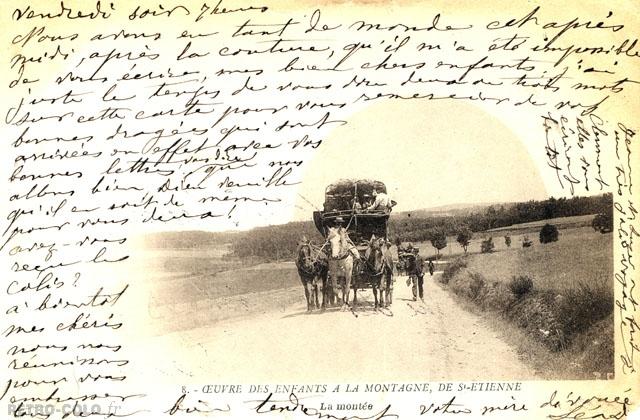 vendredi soir 7 heures
Nous avons eu tant de monde cet après
midi, après la couture, qu'il m'a été impossible
de vous écrire, mes bien chers enfants, j'ai
juste le temps de vous dire deux ou trois mots
sur cette carte pour vous remercier de vos
bonnes dragées qui sont
arrivées en effet avec vos
bonnes lettres,
vous dire que nous
allons bien, Dieu veuille
qu'il en soit de même
pour vous deux!
avez-vous
reçu les
colis?
à bientôt
mes chéris
nous nous
réunissons
pour vous
embrasser
bien tendrement votre mère dévouée
Clermont
8. - ŒUVRE DES ENFANTS A LA MONTAGNE, DE St-ETIENNE
La montée
RETRO-COLO.fr